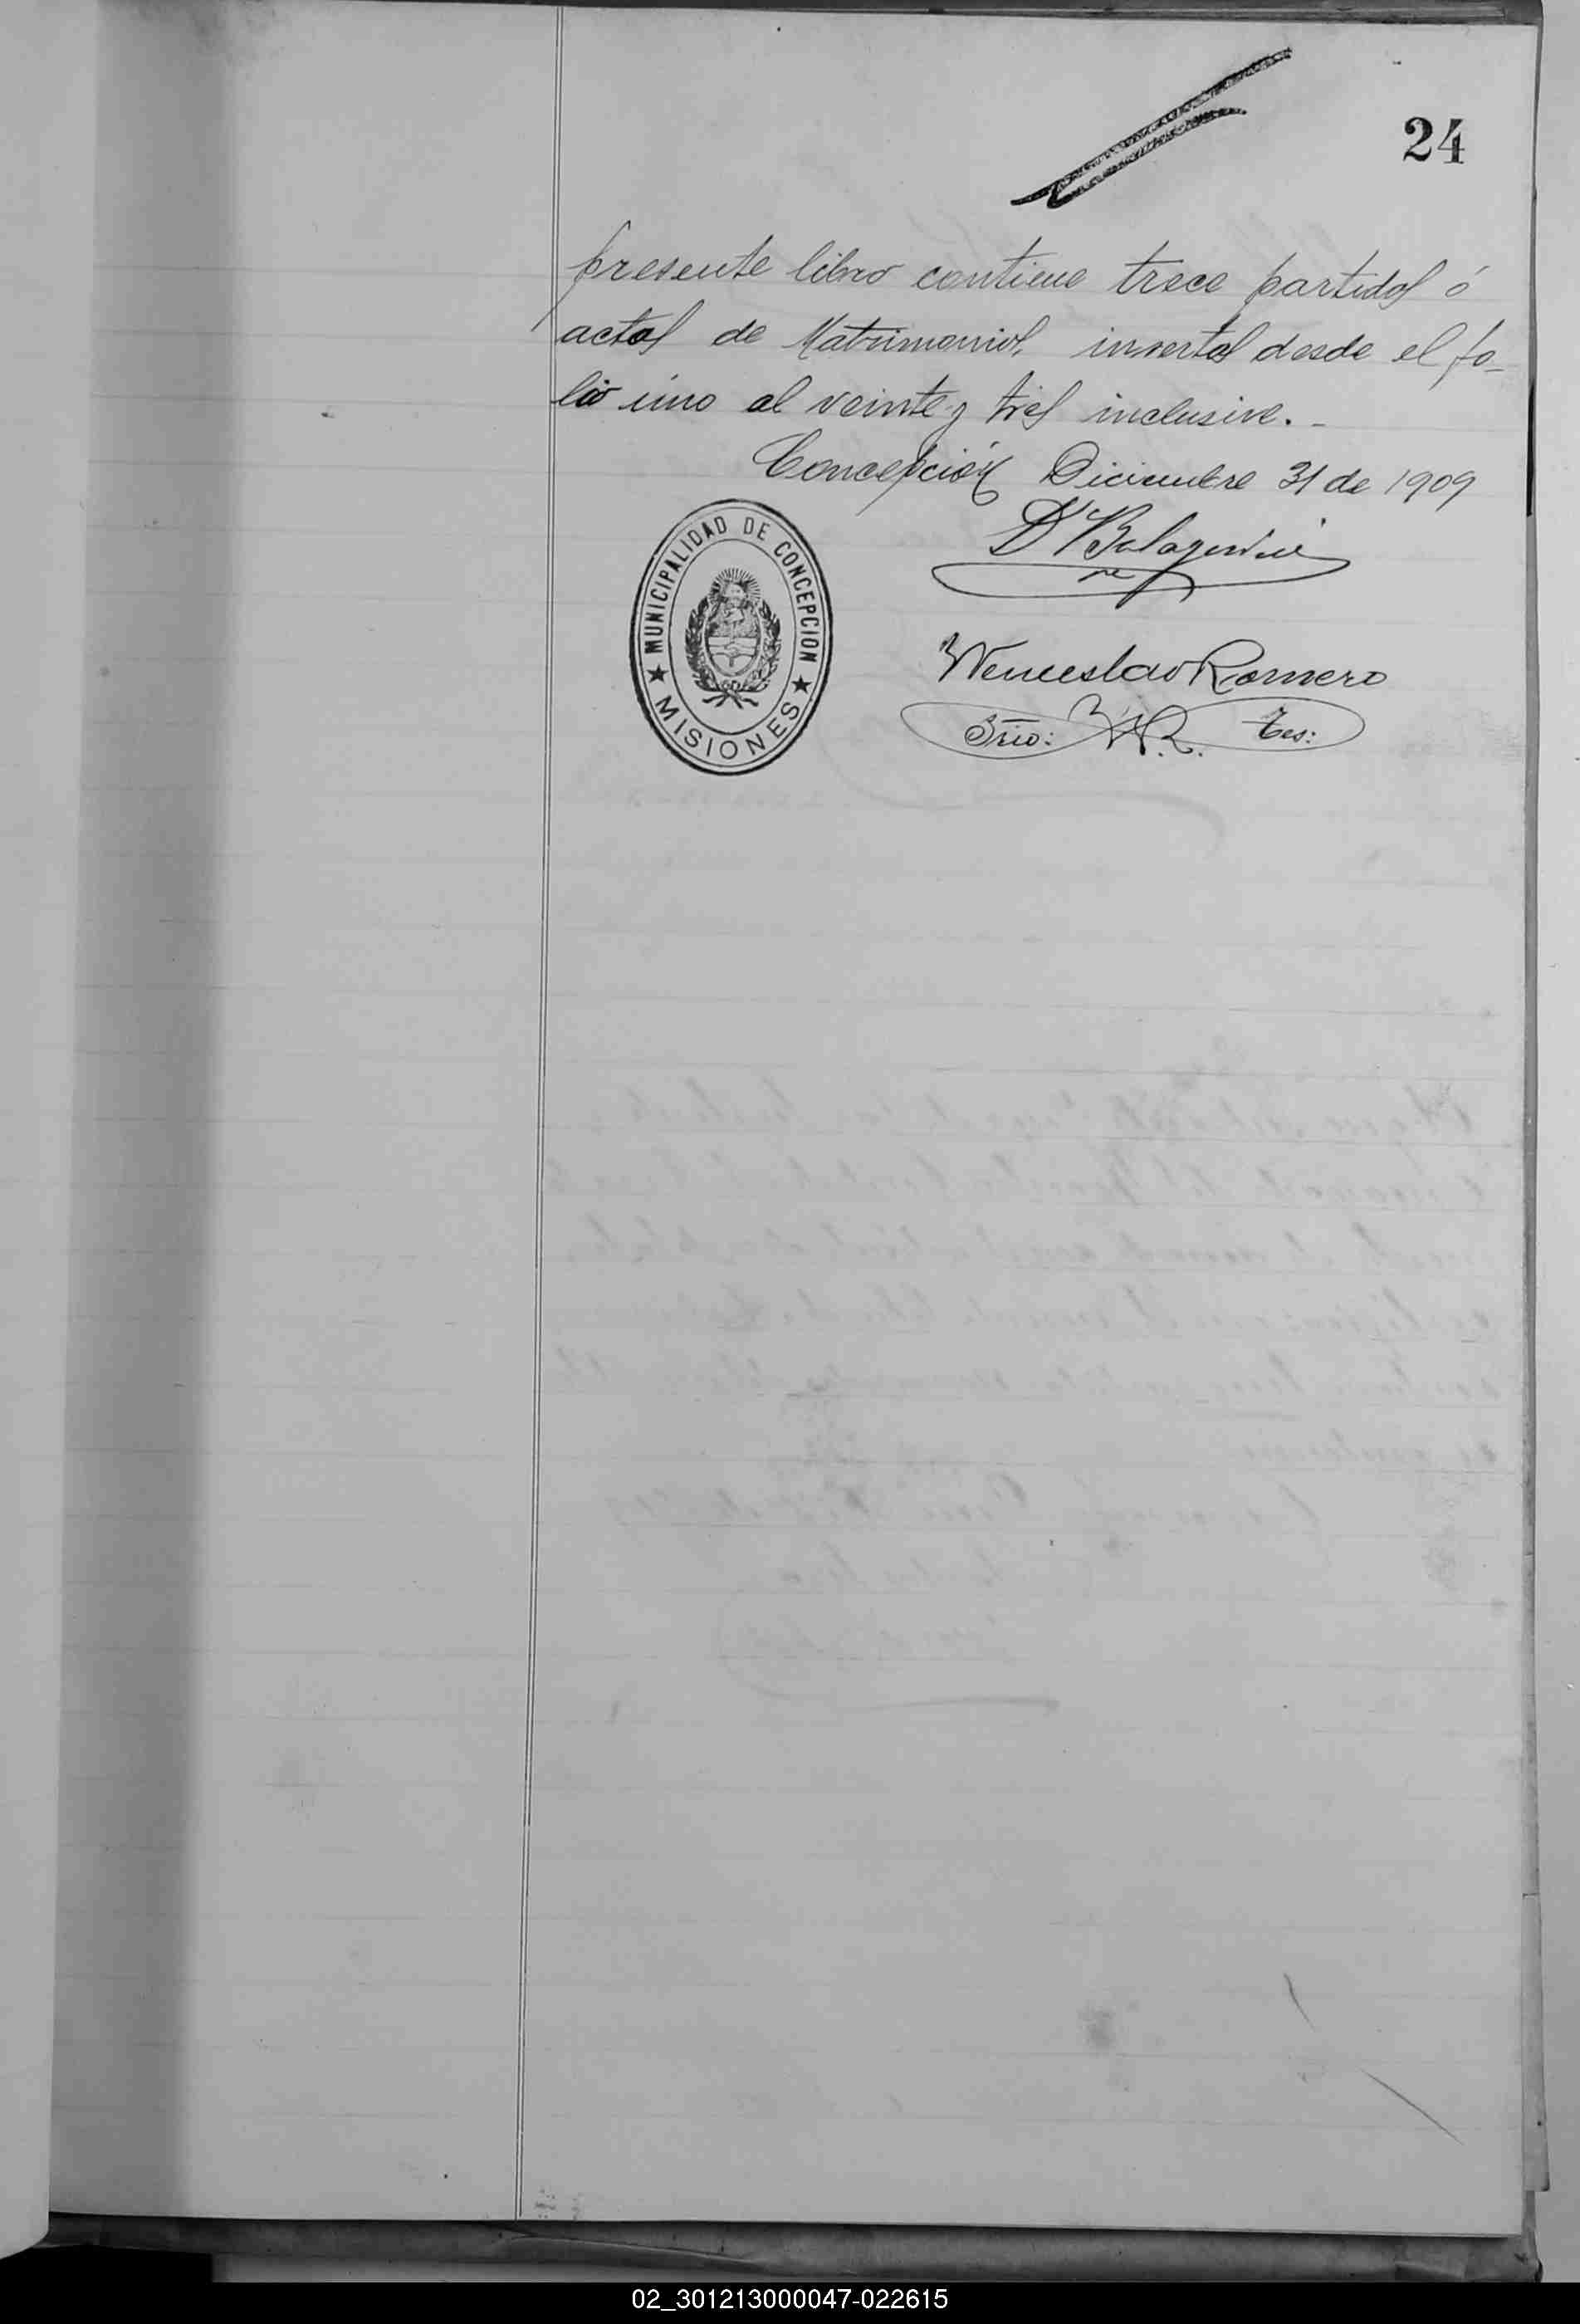 24
presente libro contiene trece partidas ó
actas de Matrimonios, insertas desde el fo-
lio uno al veinte y tres inclusive. -
Concepción Diciembre 31 de 1909
MUNICIPALIDAD DE CONCEPCION
★ MISIONES ★
Wenceslao Romero
Srio: W.R. Tes:
02_301213000047-022615